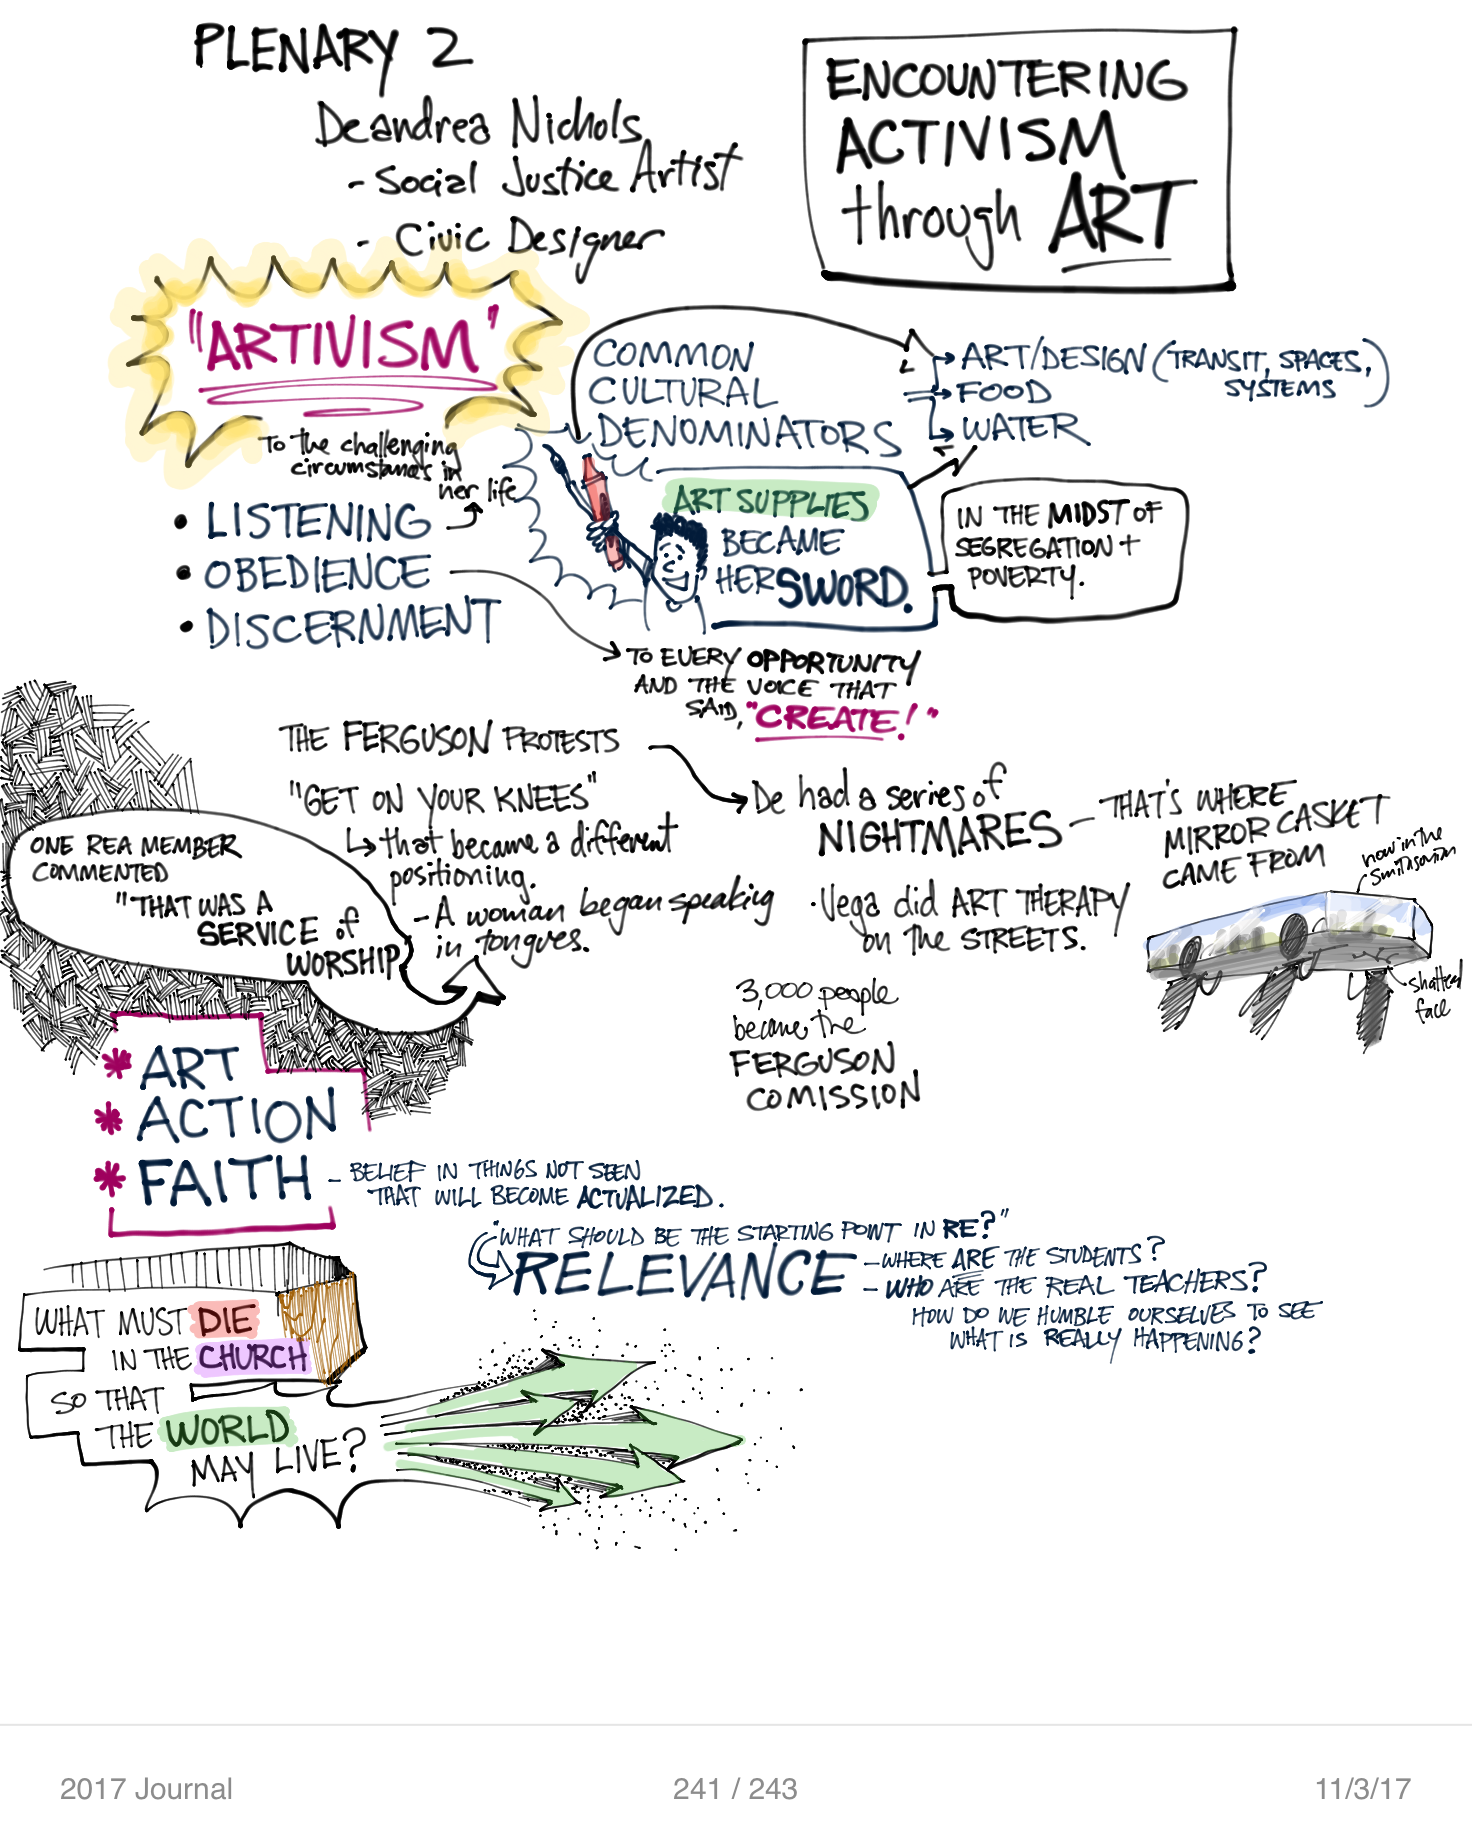 PLENARY 2
Deandrea Nichols
- Social Justice Artist
- Civic Designer
ENCOUNTERING
ACTIVISM
through ART
"ARTIVISM"
COMMON
CULTURAL
DENOMINATORS
ART/DESIGN (TRANSIT, SPACES,
SYSTEMS)
FOOD
WATER
To the challenging
circumstances in
her life
• LISTENING
• OBEDIENCE
• DISCERNMENT
ART SUPPLIES
BECAME
HER SWORD.
IN THE MIDST OF
SEGREGATION +
POVERTY.
TO EVERY OPPORTUNITY
AND THE VOICE THAT
SAID, "CREATE!"
THE FERGUSON PROTESTS
"GET ON YOUR KNEES"
that became a different
positioning.
- A woman began speaking
in tongues.
ONE REA MEMBER
COMMENTED
"THAT WAS A
SERVICE of
WORSHIP
De had a series of
NIGHTMARES
- THAT'S WHERE
MIRROR CASKET
CAME FROM
now in the
Smithsonian
shattered
face
· Vega did ART THERAPY
on the STREETS.
3,000 people
became the
FERGUSON
COMISSION
* ART
* ACTION
* FAITH
- BELIEF IN THINGS NOT SEEN
THAT WILL BECOME ACTUALIZED.
"WHAT SHOULD BE THE STARTING POINT IN RE?"
RELEVANCE
- WHERE ARE THE STUDENTS?
- WHO ARE THE REAL TEACHERS?
HOW DO WE HUMBLE OURSELVES TO SEE
WHAT IS REALLY HAPPENING?
WHAT MUST DIE
IN THE CHURCH
SO THAT
THE WORLD
MAY LIVE?
2017 Journal
241 / 243
11/3/17